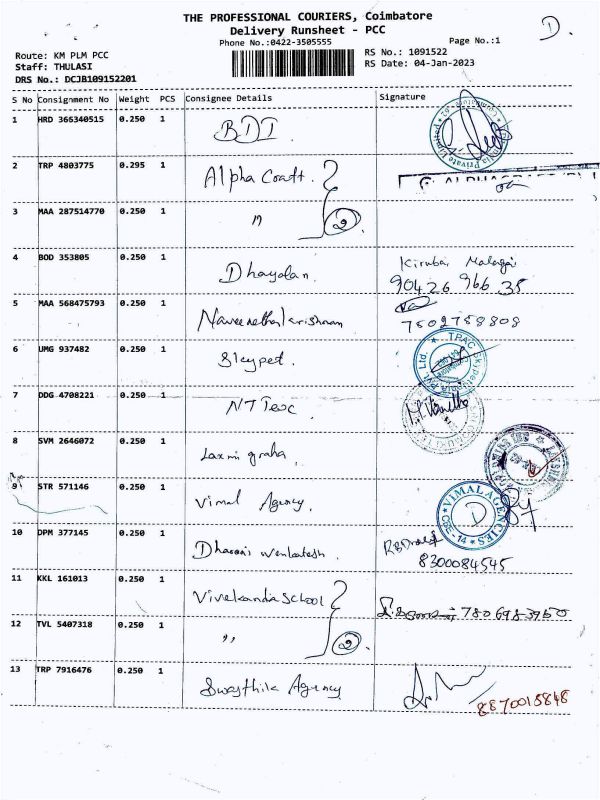 THE PROFESSIONAL COURIERS, Coimbatore
D.
Delivery Runsheet - PCC
Phone No.:0422-3505555
Page No.:1
Route: KM PLM PCC
RS No.: 1091522
Staff: THULASI
RS Date: 04-Jan-2023
DRS No.: DCJB109152201
S No Consignment No Weight PCS Consignee Details Signature
1 HRD 366340515 0.250 1 BDI
2 TRP 4803775 0.295 1 Alpha Coatt.
3 MAA 287514770 0.250 1 " 2
4 BOD 353805 0.250 1 Dhayalan 90426 966 35
5 MAA 568475793 0.250 1 7502758808
6 UMG 937482 0.250 1 Skypet. TPAC
7 DDG 4708221 0.250 1 NT Texc
8 SVM 2646072 0.250 1 Laxmi graha.
9 STR 571146 0.250 1 Vimal Agency. VIMAL AGENCIES CBE-14 D
10 DPM 377145 0.250 1 Dharani Venkatesh. 8300084545
11 KKL 161013 0.250 1 Vivekanda School 7806983960
12 TVL 5407318 0.250 1 ,, 2
13 TRP 7916476 0.250 1 Swasthik Agency 8870015848